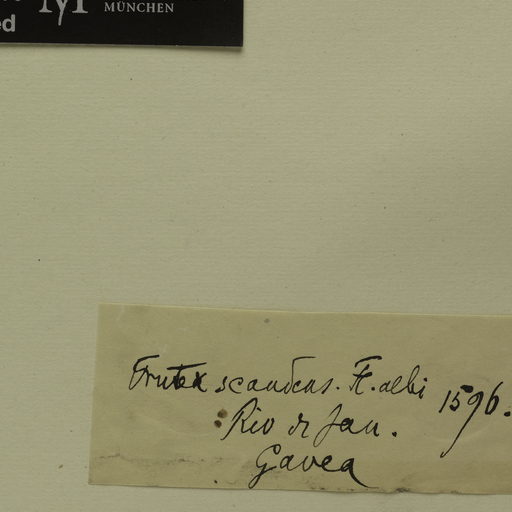 MÜNCHEN
ed
Frutex scandens. Fl. albi 1596.
Rio de Jan.
Gavea